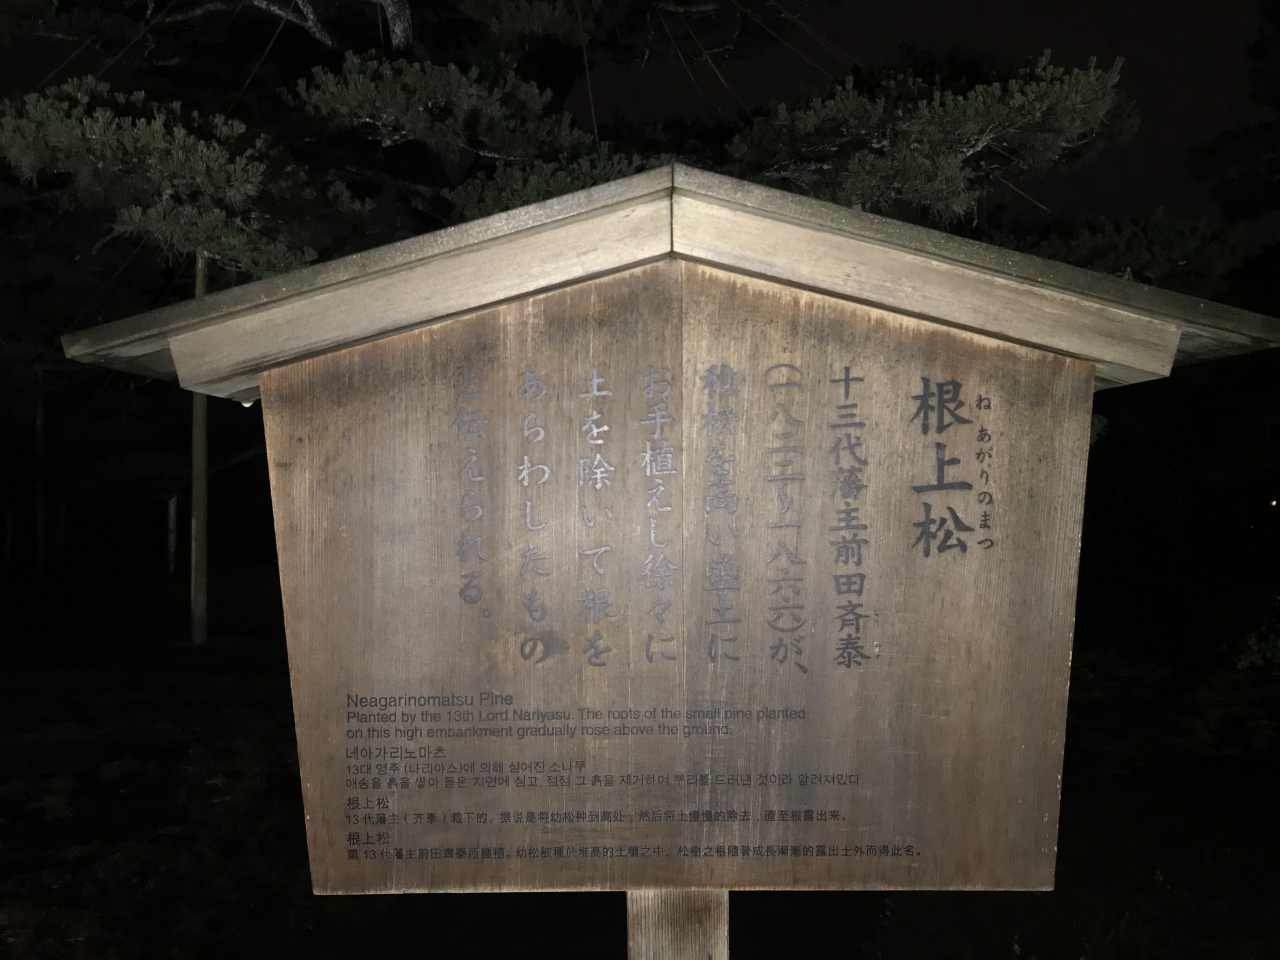 根上松
ね あがりのまつ
十三代藩主前田斉泰
(一八二二〜一八六六)が、
稚松を高い盛土に
お手植えし徐々に
土を除いて根を
あらわしたもの
と伝えられる。
Neagarinomatsu Pine
Planted by the 13th Lord Nariyasu. The roots of the small pine planted
on this high embankment gradually rose above the ground.
네아가리노마츠
13대 영주 (나리야스)에 의해 심어진 소나무
애송을 흙을 쌓아 돋운 지면에 심고, 점점 그 흙을 제거하여 뿌리를 드러낸 것이라 알려져있다.
根上松
13代藩主(齐泰)栽下的。据说是将幼松种到高处,然后将土慢慢的除去,直至根露出来。
根上松
第13代藩主前田齊泰所種植。幼松被種於堆高的土壤之中,松樹之根隨著成長漸漸的露出土外而得此名。